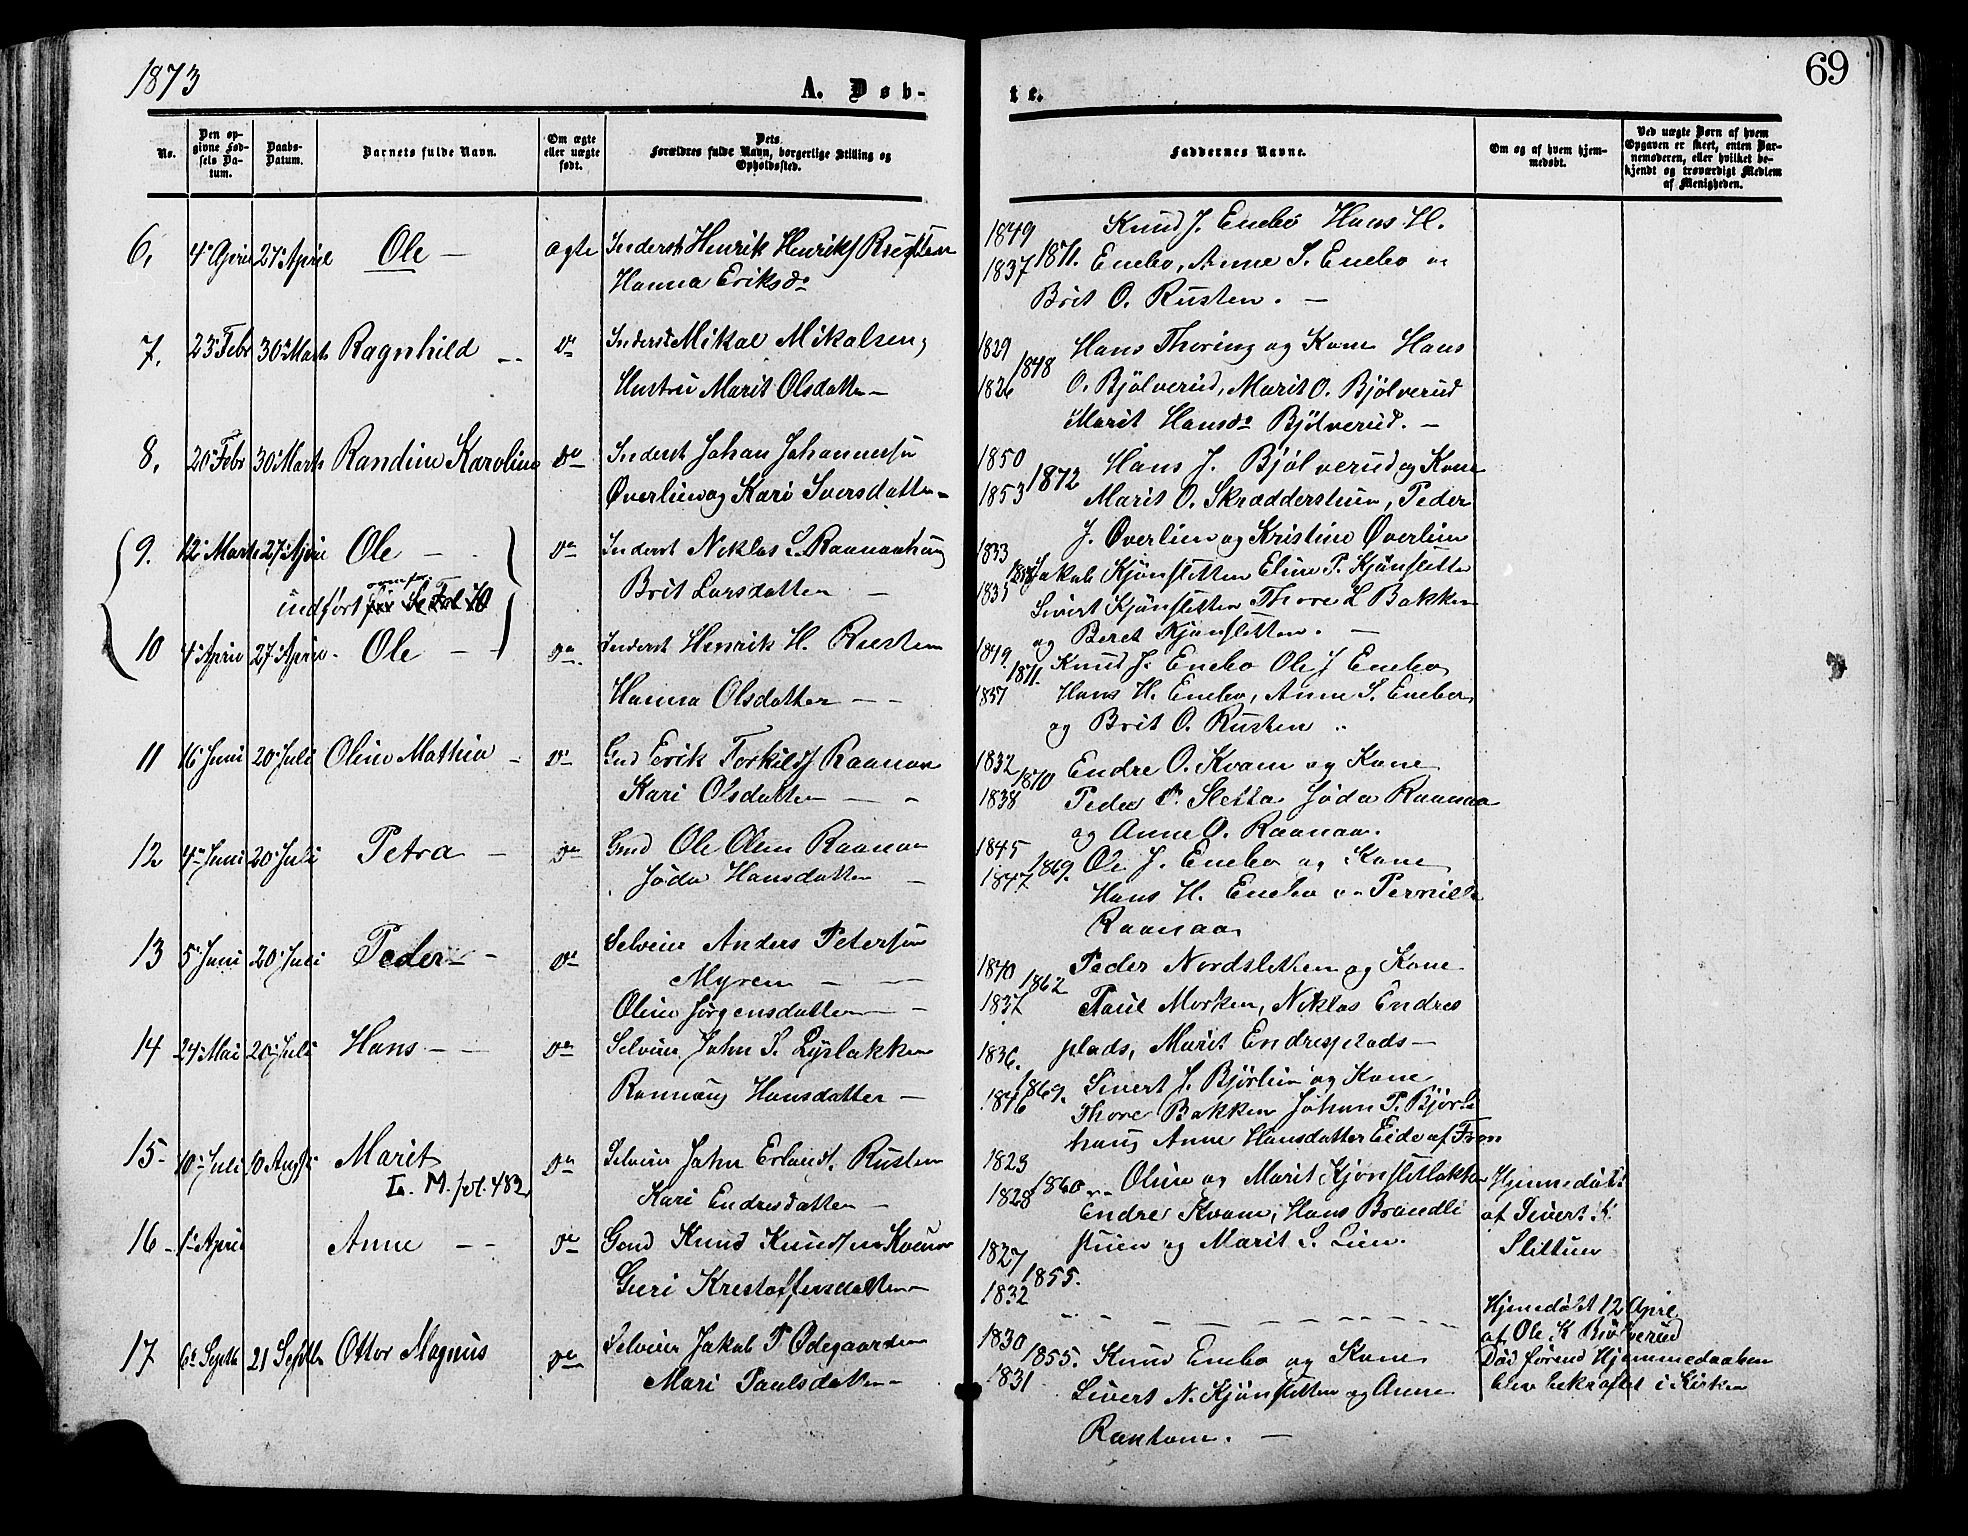 1873
A. Døb-
te.
69
No.
Den op-
givne Fød-
sels Da-
tum.
Daabs-
Datum.
Barnets fulde Navn.
Om ægte
eller uægte
født.
Dets
Forældres fulde Navn, borgerlige Stilling og
Opholdssted.
Faddernes Navne.
Om og af hvem hjem-
medøbt.
Ved uægte Børn af hvem
Opgaven er skeet, enten Bar-
nemoderen, eller hvilket be-
kjendt og troværdigt Medlem
af Menigheden.
6, 4 April 27 April Ole — ægte Inderst Henrik Henriks Rusten
Hanna Eriksd
1849 Knud J. Enebo Hans H.
1837 1871. Enebo, Anne S. Enebo og
Brit O. Rusten. —
7. 23 Febr 30 Marts Ragnhild Inderst Mikal Mikalsen
Hustru Marit Olsdatter —
1829 Hans Thoring og Kone Hans
1848
1826 O. Bjölverud, Marit O. Bjölverud
Marit Hansd Bjölverud. —
8. 20 Febr 30 Marts Randine Karoline Do Inderst Johan Johannessen
Øverlien og Kari Iversdatter
1850 Hans J. Bjölverud og Kone
1853 1872 Marit O. Skrædderstuen, Peder
J. Øverlien og Kristine Øverlien
9. 12 Marts 27 April Ole — Do Inderst Niklas L. Raanaahaug
Brit Larsdatter —
indført ovenfor Se Fol 70
1833 Jakob Kjönsletten Eline P. Kjönslette
1835 Sivert Kjönsletten Thore L Bakken
og Beret Kjönsletten. —
10 4 April 27 April Ole — Do Inderst Henrik H. Rusten
Hanna Olsdatter —
1849 Knud J. Enebo Ole J Enebo
1871.
1837 Hans H. Enebo, Anne S. Enebo
og Brit O. Rusten
11 16 Juni 20 Juli Oline Mathia Gmd Erik Torkilds Raanaa
Kari Olsdatter —
1832 Endre O. Kvam og Kone
1870
1838 Peder P. Sletta Jöda Raanaa
og Anne O. Raanaa.
12 4 Juni 20 Juli Petra — Do Gmd Ole Olsen Raanaa
Jöda Hansdatter —
1845 Ole J. Enebo og Kone
1847 1869. Hans H. Enebo og Pernille
Raanaa
13 5 Juni 20 Juli Peder — Selveier Anders Petersen
Myren —
Oline Jørgensdatter —
1840 Peder Nordsletten og Kone
1862
1837 Paul Morken, Niklas Endres
plads, Marit Endresplads —
14 24 Mai 20 Juli Hans — Do Selveier John S. Lyslakken
Rønnaug Hansdatter —
1836. Sivert J. Björlien og Kone
1869.
1846 Thore Bakken Johan P. Björli
haug Anne Hansdatter Eide af Fron
15 10 Juli 10 Augst Marit Do Selveier John Erlands. Rusten
L. M. fol. 483
Kari Endresdatter —
1823 Oline og Marit Kjönsletlakken
1828 1860 Endre Kvam, Hans Brandli
stuen og Marit S. Lien.
Hjemmedøbt
af Sivert K
Slettum
16 1 April Anne — Do Gmd Knud Knudsen Kvam
Guri Kristoffersdatter —
1827
1855.
1832
Hjemedöbt 12 April
af Ole K Bjölverud
Död förend Hjemmedaaben
blev bekræftet i Kirken
17 6 Septb 21 Septbr Ottor Magnus Do Selveier Jakob P Ødegaarden
Mari Paulsdatter —
1830 1855. Knud Enebo og Kone
1831 Sivert N. Kjönsletten og Anne
Rustom. —